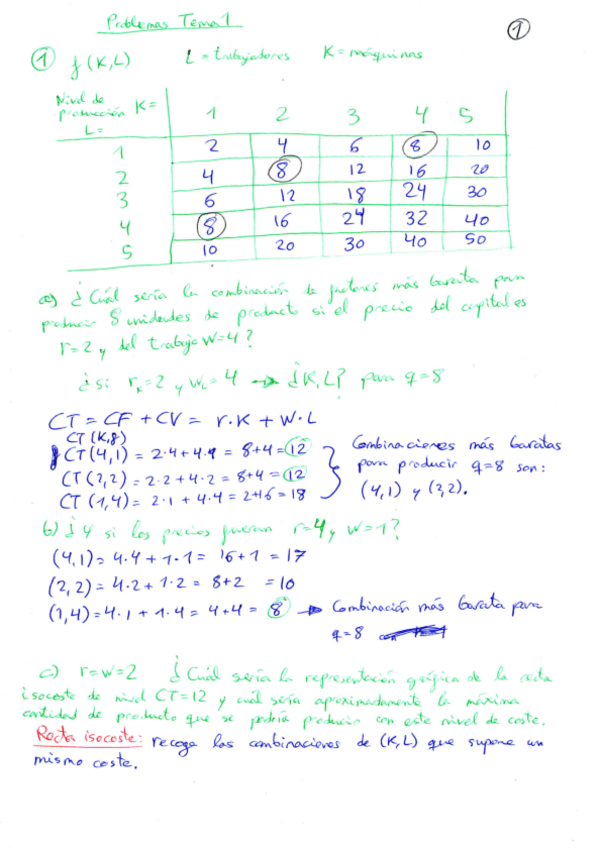 Problemas Tema 1
1
① f(K,L) L = trabajadores K = máquinas
Nivel de producción K= 1 2 3 4 5
L=
1 2 4 6 8 10
2 4 8 12 16 20
3 6 12 18 24 30
4 8 16 24 32 40
5 10 20 30 40 50
a) ¿Cuál sería la combinación de factores más barata para
producir 8 unidades de producto si el precio del capital es
r=2 y del trabajo W=4?
¿si rₖ=2 y w_L=4 → ¿K,L? para q=8
CT = CF + CV = r·K + W·L
CT (K,8)
CT (4,1) = 2·4+4·4 = 8+4 = 12
CT (2,2) = 2·2+4·2 = 8+4 = 12
CT (1,4) = 2·1 + 4·4 = 2+16 = 18
Combinaciones más baratas
para producir q=8 son:
(4,1) y (2,2).
b) ¿Y si los precios fueran r=4 y w=1?
(4,1) = 4·4 + 1·1 = 16+1 = 17
(2,2) = 4·2 + 1·2 = 8+2 = 10
(1,4) = 4·1 + 1·4 = 4+4 = 8 → Combinación más barata para
q=8
c) r=w=2 ¿Cuál sería la representación gráfica de la recta
isocoste de nivel CT=12 y cuál sería aproximadamente la máxima
cantidad de producto que se podría producir con este nivel de coste.
Recta isocoste: recoge las combinaciones de (K,L) que supone un
mismo coste.